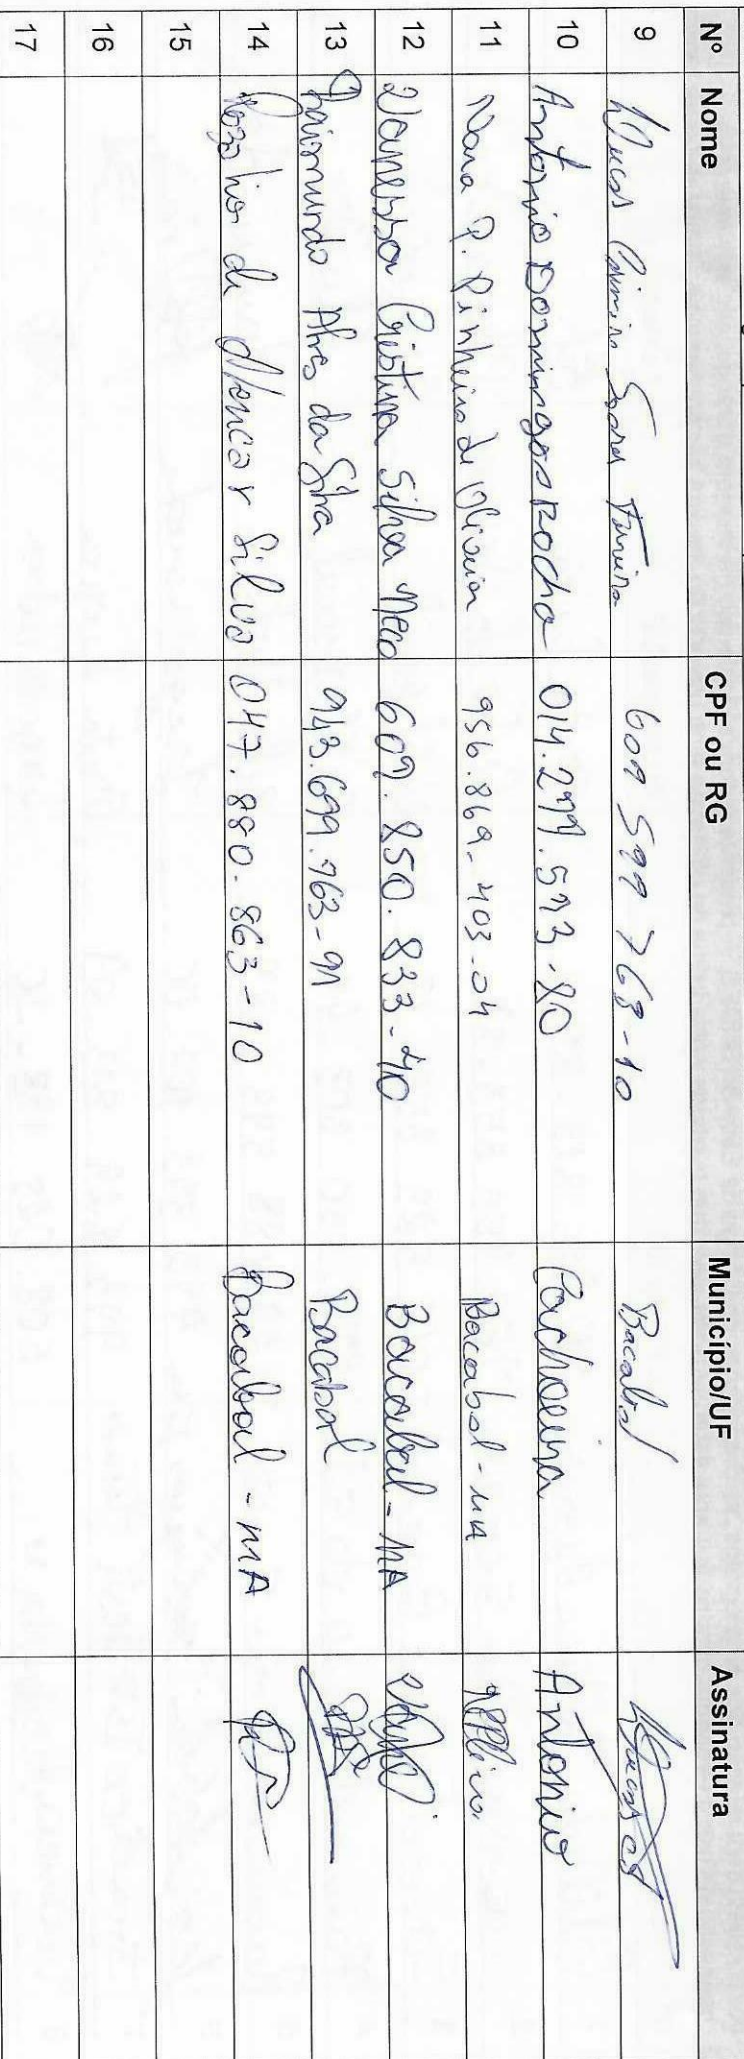 Nº Nome CPF ou RG Município/UF Assinatura
9 Lucas Soares Ferreira 609 599 768-10 Bacabal
10 Antonio Domingos Rocha 014.299.593-80 Cachoeira Antonio
11 Nara P. Pinheiro de Oliveira 956.869-403-04 Bacabal-MA
12 Vanessa Cristina Silva Melo 609.850.833-40 Bacabal-MA
13 Raimundo Alves da Silva 943.699.763-91 Bacabal
14 Rozalia de Alencar Silva 047.880.863-10 Bacabal-MA
15
16
17